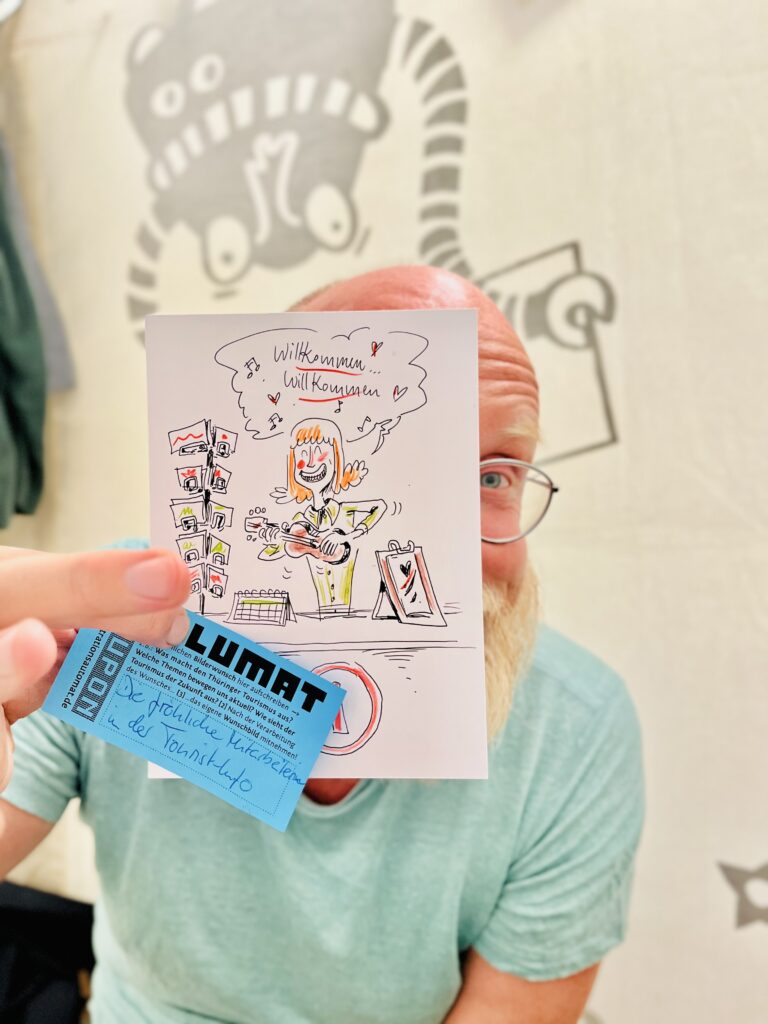 Willkommen...
Willkommen
LUMAT
UPON
trationsautomat.de
lichen Bilderwunsch hier aufschreiben →
Was macht den Thüringer Tourismus aus?
Welche Themen bewegen uns aktuell? Wie sieht der
Tourismus der Zukunft aus? [2] Nach der Verarbeitung
des Wunsches... [3] das eigene Wunschbild mitnehmen!
Die fröhliche Mitarbeiterin
in der TouristInfo